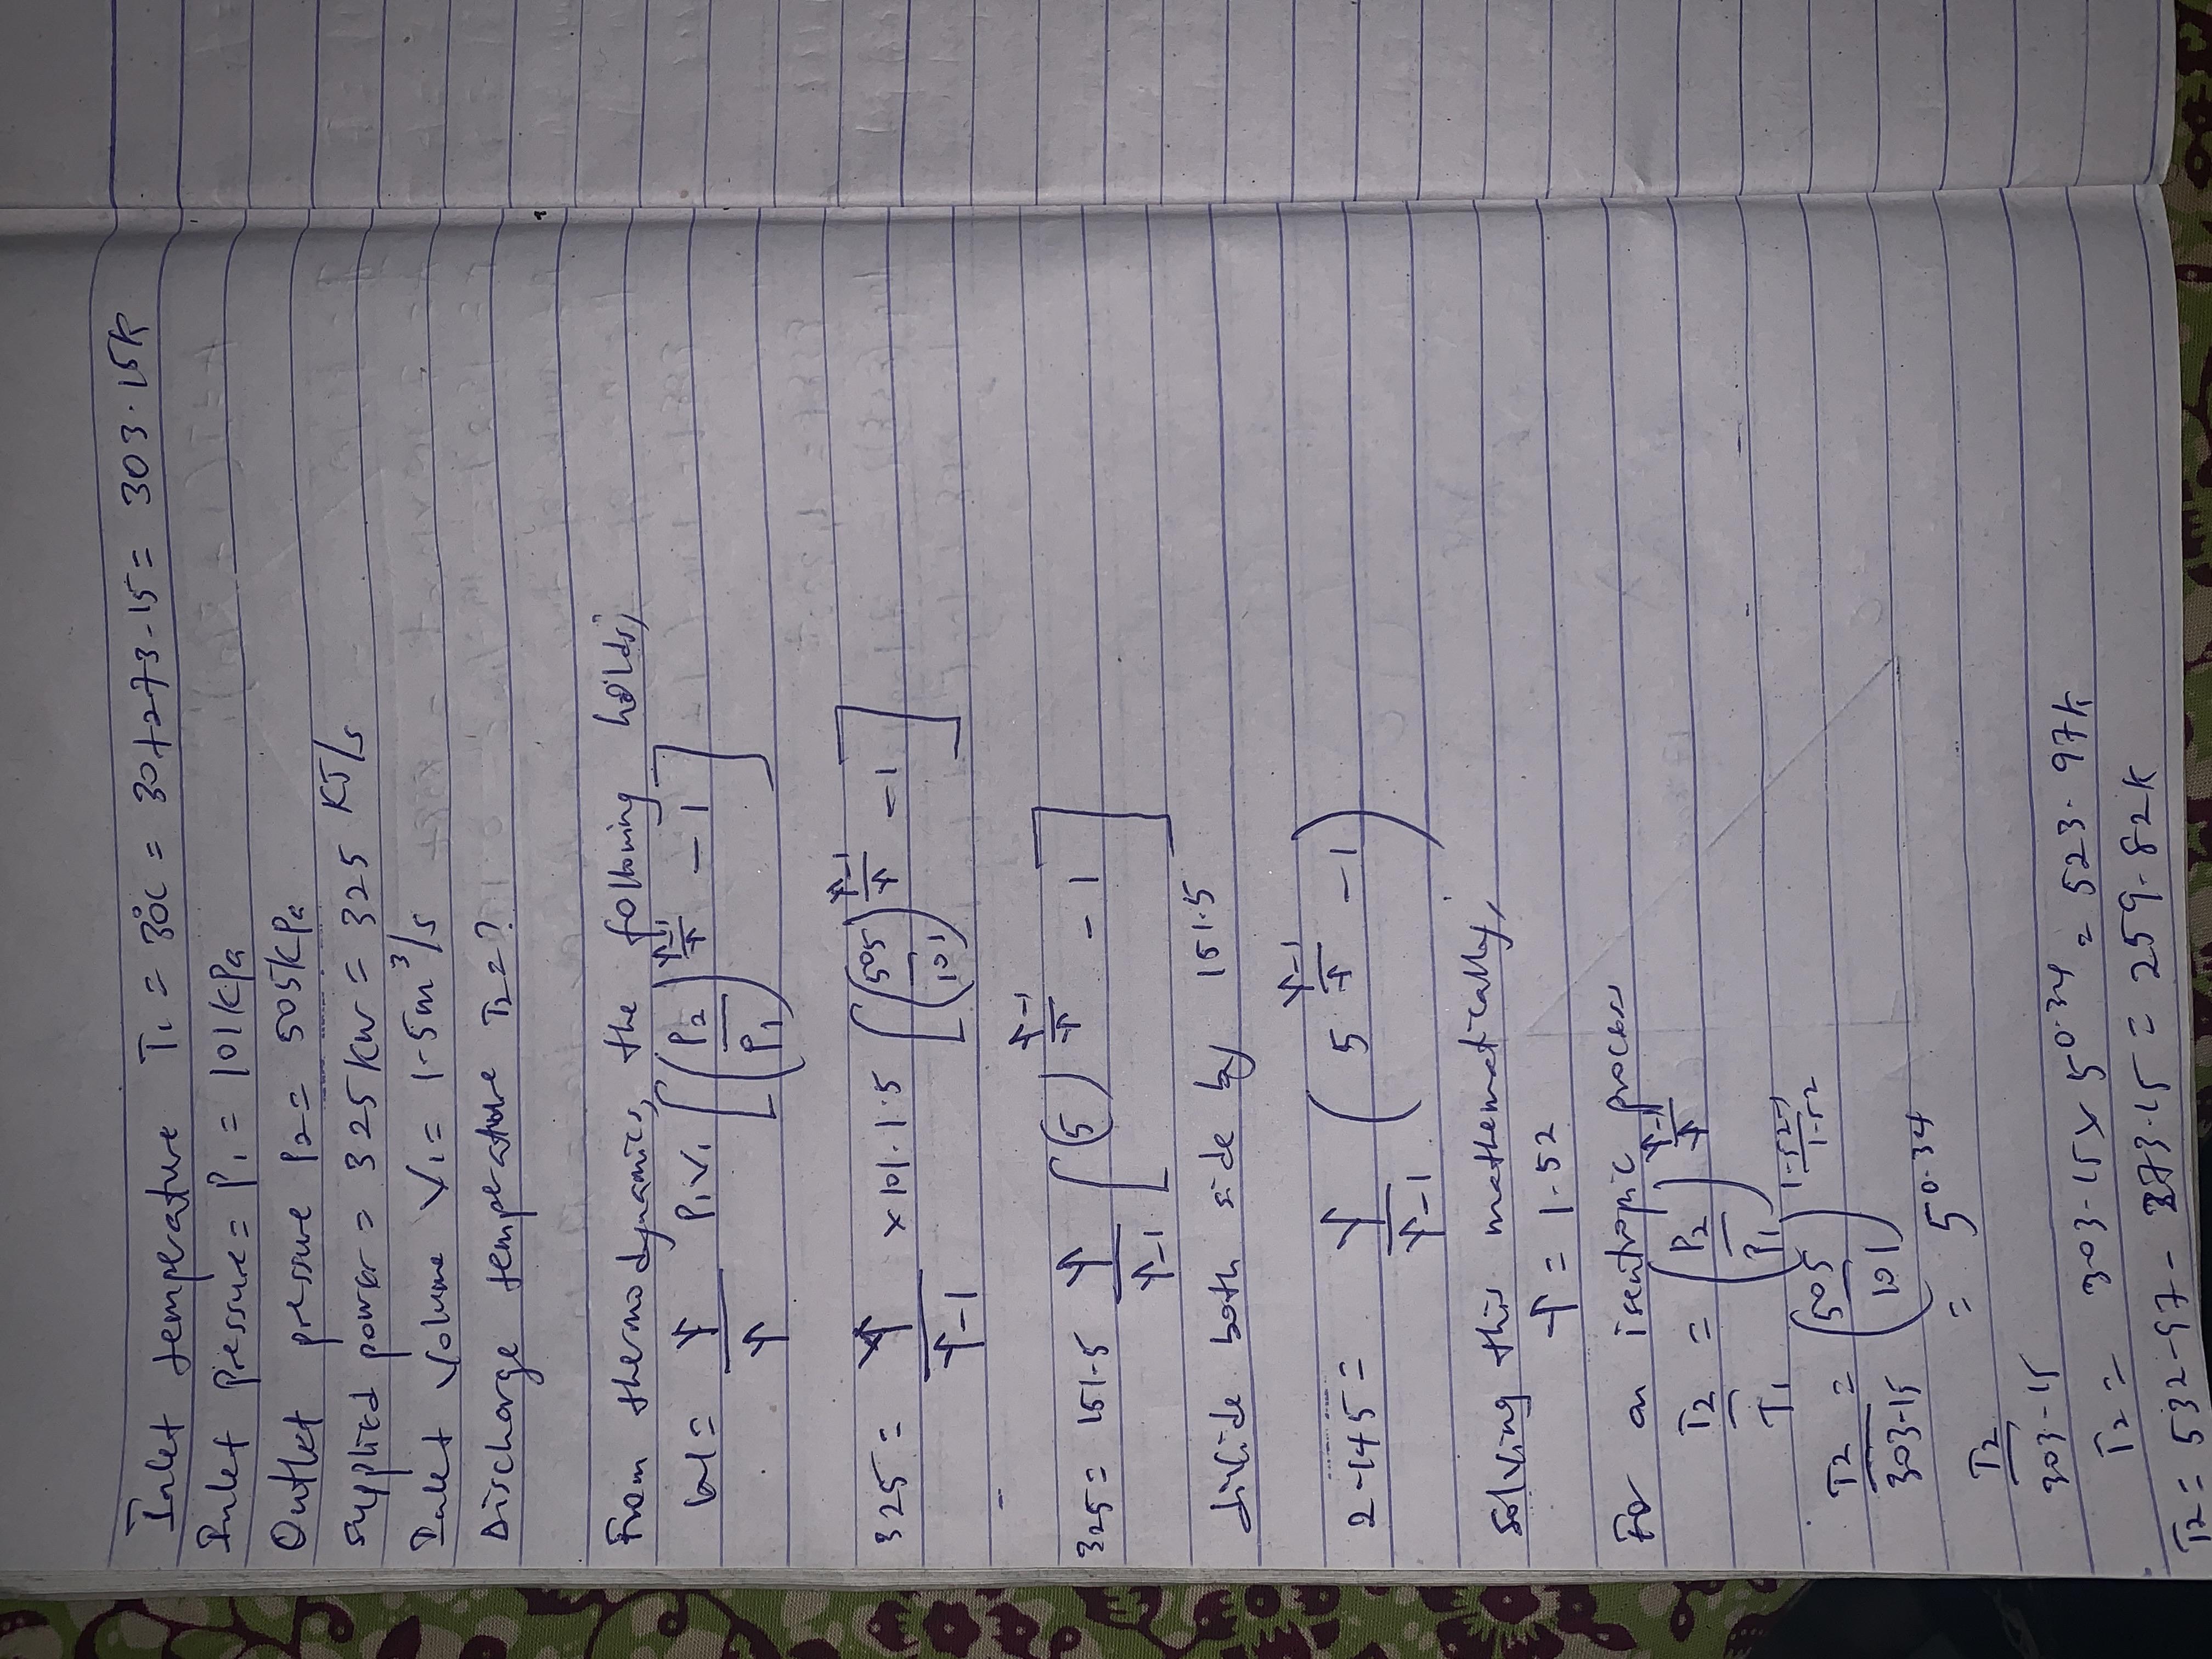 Inlet temperature T1 = 30°C = 30+273.15 = 303.15k
Inlet pressure = P1 = 101kPa
Outlet pressure P2 = 505kPa
supplied power = 325kw = 325 KJ/s
Inlet volume V1 = 1.5m³/s
Discharge temperature T2 = ?
From thermodynamics, the following holds;
w = γ/γ P1V1 [(P2/P1)^(γ-1/γ) - 1]
325 = γ/γ-1 × 101.1.5 [(505/101)^(γ-1/γ) - 1]
325 = 151.5 γ/γ-1 [(5)^(γ-1/γ) - 1]
divide both side by 151.5
2.145 = γ/γ-1 (5^(γ-1/γ) - 1)
Solving this mathematically,
γ = 1.52
For an isentropic process
T2/T1 = (P2/P1)^(γ-1/γ)
T2/303.15 = (505/101)^(1.52-1/1.52)
T2/303.15 = 5^0.34
T2 = 303.15 × 5^0.34 = 523.97k
T2 = 532.97 - 273.15 = 259.82k